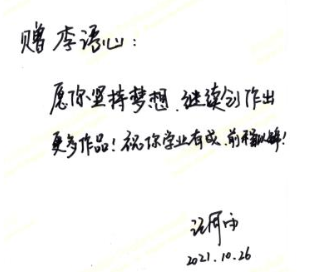 赠李语心:
愿你坚持梦想,继续创作出
更多作品!祝你学业有成,前程似锦!
2021.10.26